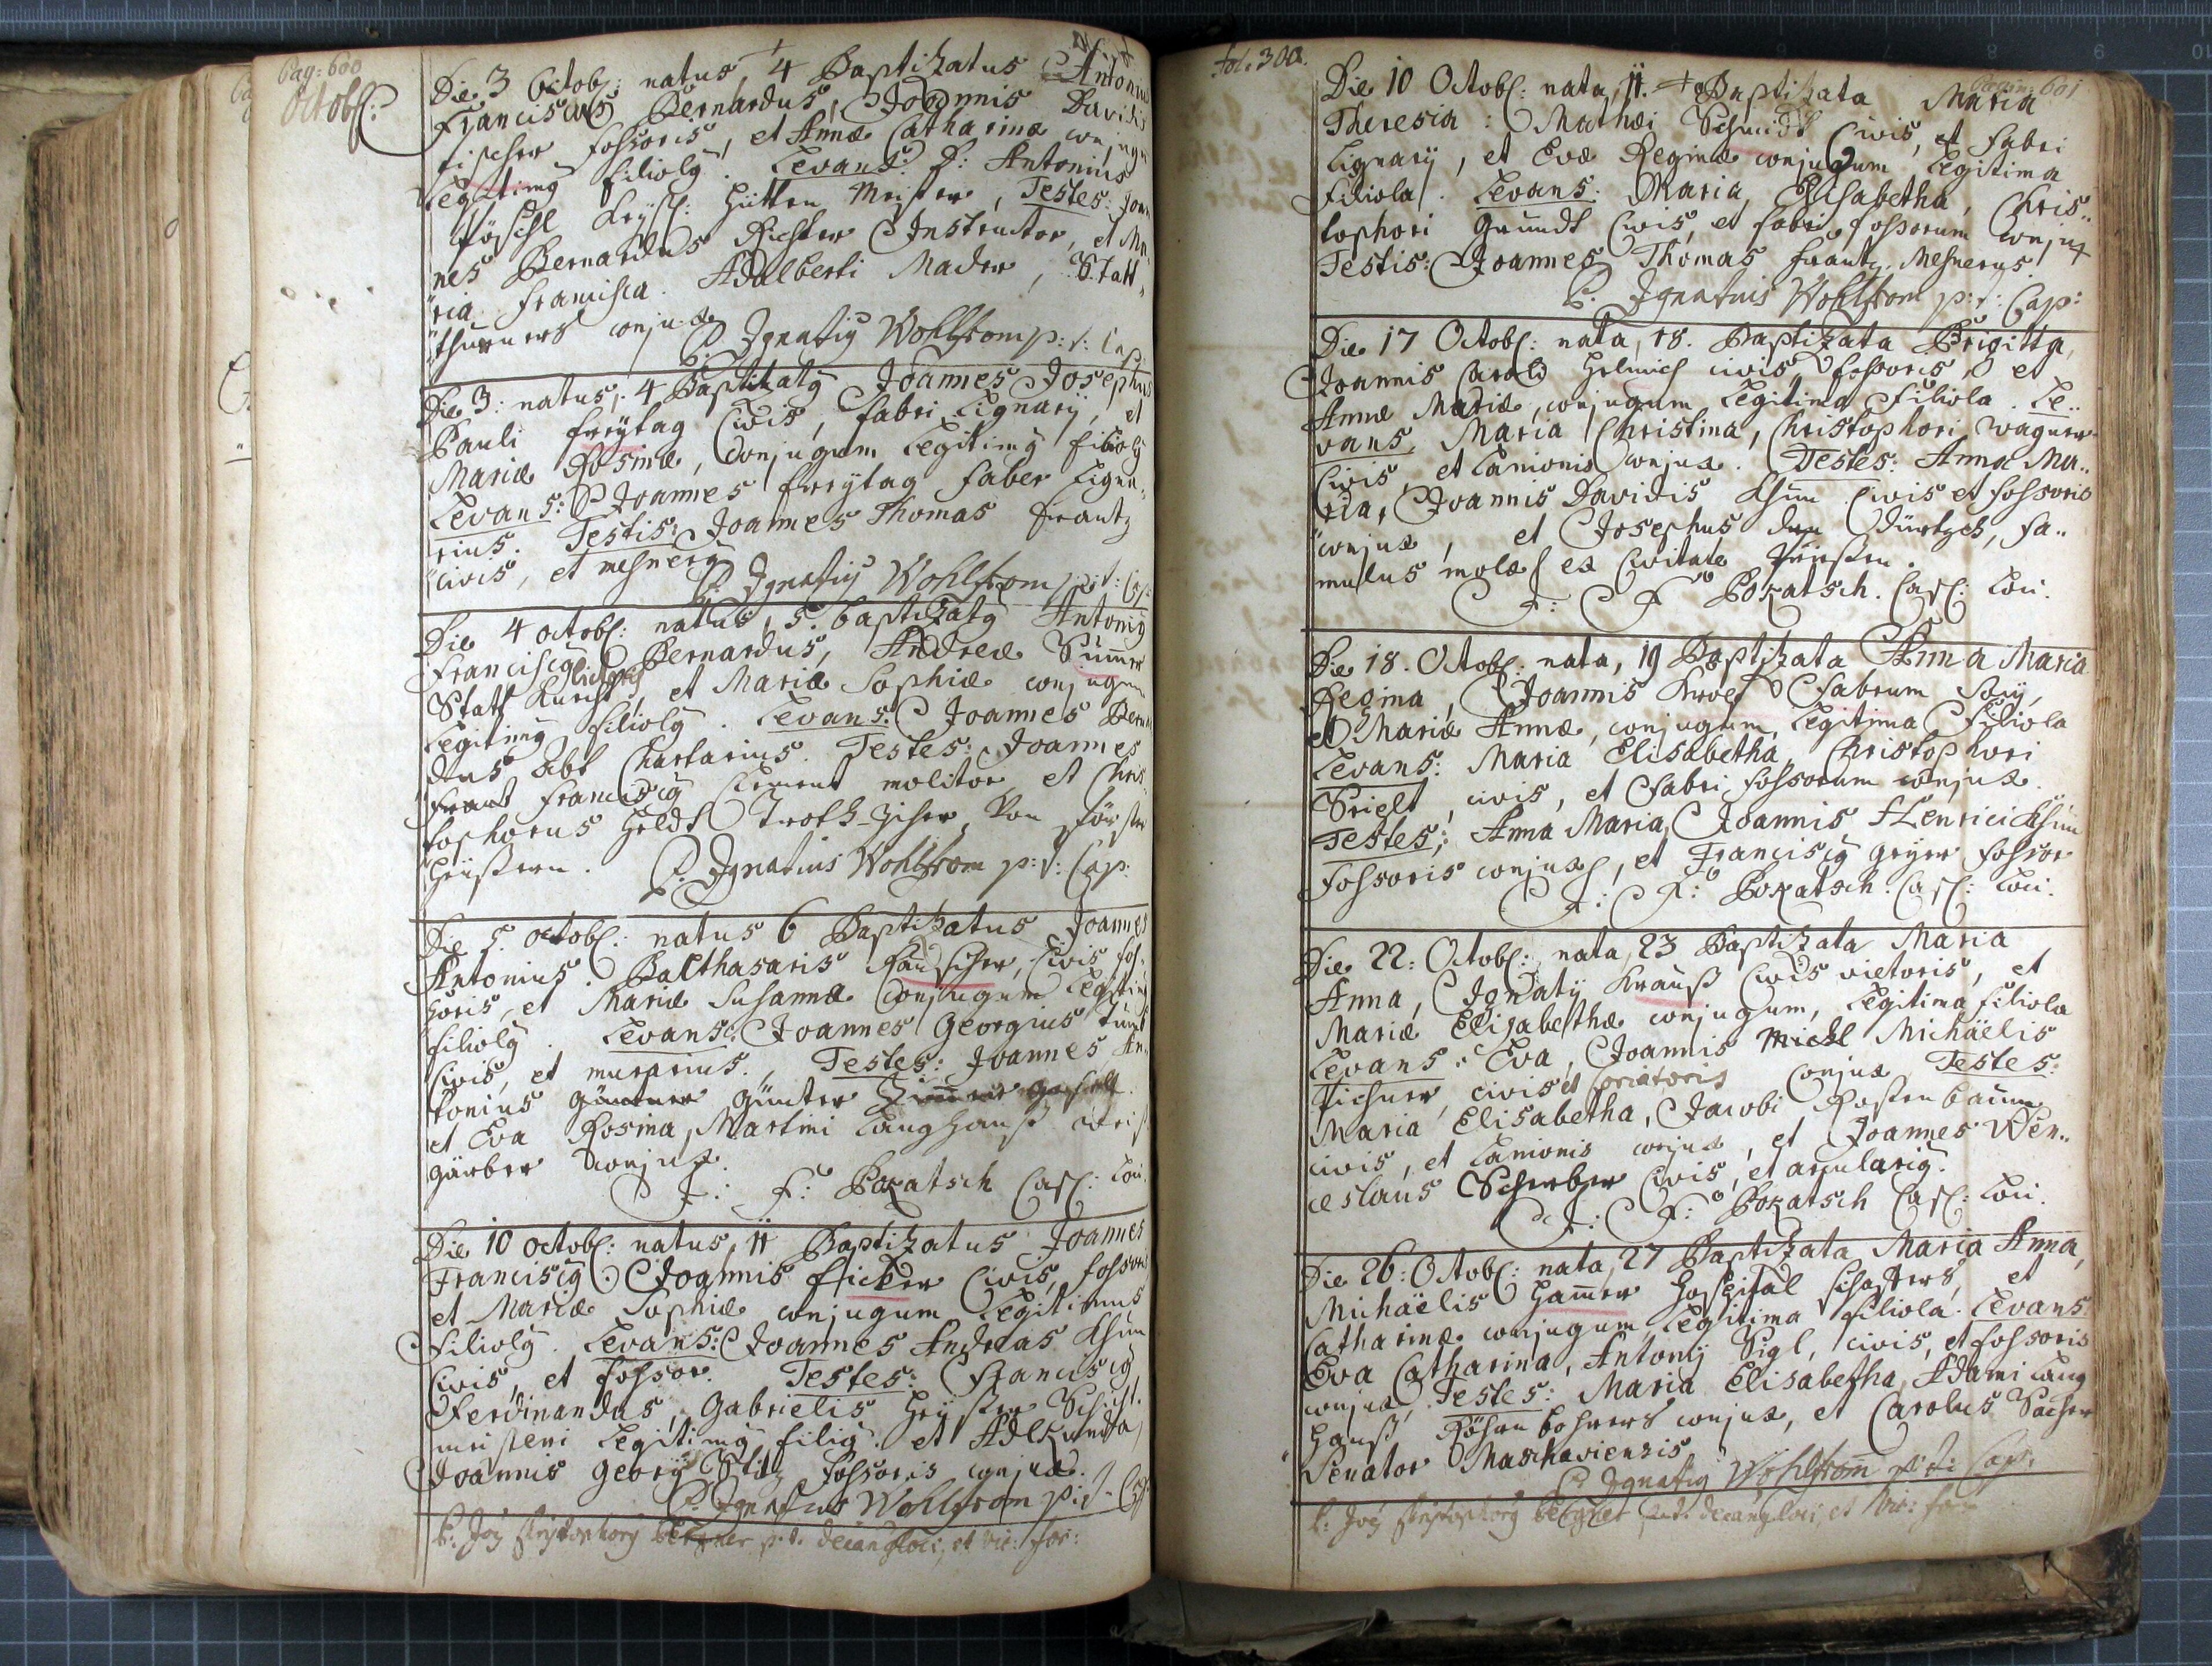 Pag: 600
Octobr:
Die 3 Octobr: natus, 4 Baptizatus Antonius
Franciscus Bernardus, Joannis Davidis
fischer fossoris, et Annæ Catharinæ conjugu
Legitimg filiolg. Levans: D: Antonius
Pöschl Keysl: Hütten Meister, Testes: Joan
nes Bernardus Richter Instructor, et Ma
ria Francisca Adalberti Mader, Statt
thurners conjux
P. Ignatiq Wohlfrom p: t: Cap:
Die 3: natus, 4 Baptizatq Joannes Josephus
Pauli freÿtag Civis, fabri Lignarÿ, et
Mariæ Rosinæ, Conjugum Legitimq filiolq
Levans: Joannes freÿtag faber Ligna
rius. Testis: Joannes Thomas frantz
civis, et mesnerq
P. Ignatiq Wohlfrom p: t: Cap:
Die 4 octobr: natus, 5. baptizatq Antoniq
Franciscq Bernardus, Andreæ Summer
Statt Knecht, et Mariæ Sophiæ conjugum
Legitimq filiolq. Levans: Joannes Bern
dus abt Chartarius. Testes: Joannes
Franciscq Clement molitor, et Chris
tophorus Heldt
P. Ignatius Wohlfrom p: t: Cap:
Die 5. octobr: natus 6 Baptizatus Joannes
Antonius. Balthasaris Rauscher, Civis fos
soris, et Mariæ Susannæ Conjugum Legitimq
filiolq. Levans: Joannes Georgius
Civis, et murarius. Testes: Joannes An
tonius Günter
et Eva Rosina, Martini Langhanß weiß
gärber conjux.
F: F: Pokatsch Cap: Loci
Die 10 octobr: natus, 11 Baptizatus Joannes
Franciscq: Joannis ficker Civis, fossoris
et Mariæ Sophiæ conjugum Legitimus
filiolq. Levans: Joannes Andreas Khün
Civis, et fossor. Testes: Franciscq
Ferdinandus, Gabrielis Schicht
meisteri Legitimq filiq. et Adlkunda
Joannis Georÿ fossoris conjux.
P. Ignatius Wohlfrom p: t: Cap:
fol: 300.
Pagin: 601
Die 10 Octobr: nata, 11. Baptizata Maria
Theresia: Mathæi Schmidt Civis, et fabri
Lignarÿ, et Evæ Reginæ conjugum Legitima
filiola. Levans: Maria Elisabetha, Chris..
tophori Grundt Civis, et fabri fossorum conjux
Testis: Joannes Thomas frantz Mesnerus.
P. Ignatius Wohlfrom p: t: Cap:
Die 17 Octobr: nata, 18. Baptizata Brigitta,
Joannis Caroli Helmich civis, fossoris, et
Annæ Mariæ, conjugum Legitima filiola. Le..
vans Maria Christina, Christophori Wagner
Civis, et Lanionis conjux. Testes: Anna Ma..
ria, Joannis Davidis Khün Civis et fossoris
conjux, et Josephus fa..
mulus molæ ex Civitate
F: F: Pokatsch. Cap: Loci.
Die 18. Octobr: nata, 19 Baptizata Anna Maria
Regina, Joannis fabrum Socÿ,
et Mariæ Annæ, conjugum, Legitima filiola
Levans: Maria Elisabetha, Christophori
civis, et fabri fossorum conjux.
Testes: Anna Maria, Joannis Henrici Khün
fossoris conjux, et Franciscq geyer fossor
F: F: Pokatsch. Cap: Loci.
Die 22: Octobr: nata, 23 Baptizata Maria
Anna, Ignatÿ Krauß Civis vietoris, et
Mariæ Elisabethæ conjugum, Legitima filiola
Levans: Eva, Joannis Michl Michäelis
Pichner, civis et coriatoris conjux Testes:
Maria Elisabetha, Jacobi Rostenbaum
civis, et Lanionis conjux, et Joannes Wen..
ceslaus Scherber Civis, et arcularig.
F: F: Pokatsch Cap: Loci.
Die 26: Octobr: nata, 27 Baptizata Maria Anna,
Michäelis Hammer Hospital schafters, et
Catharinæ conjugum Legitima filiola. Levans
Eva Catharina, Antonÿ Sigl, civis, et fossoris
conjux, Testes: Maria Elisabetha, Adami Lang
Hanß Röhrnbohrers conjux, et Carolus Sacher
Senator
P. Ignatiq Wohlfrom p: t: Cap: